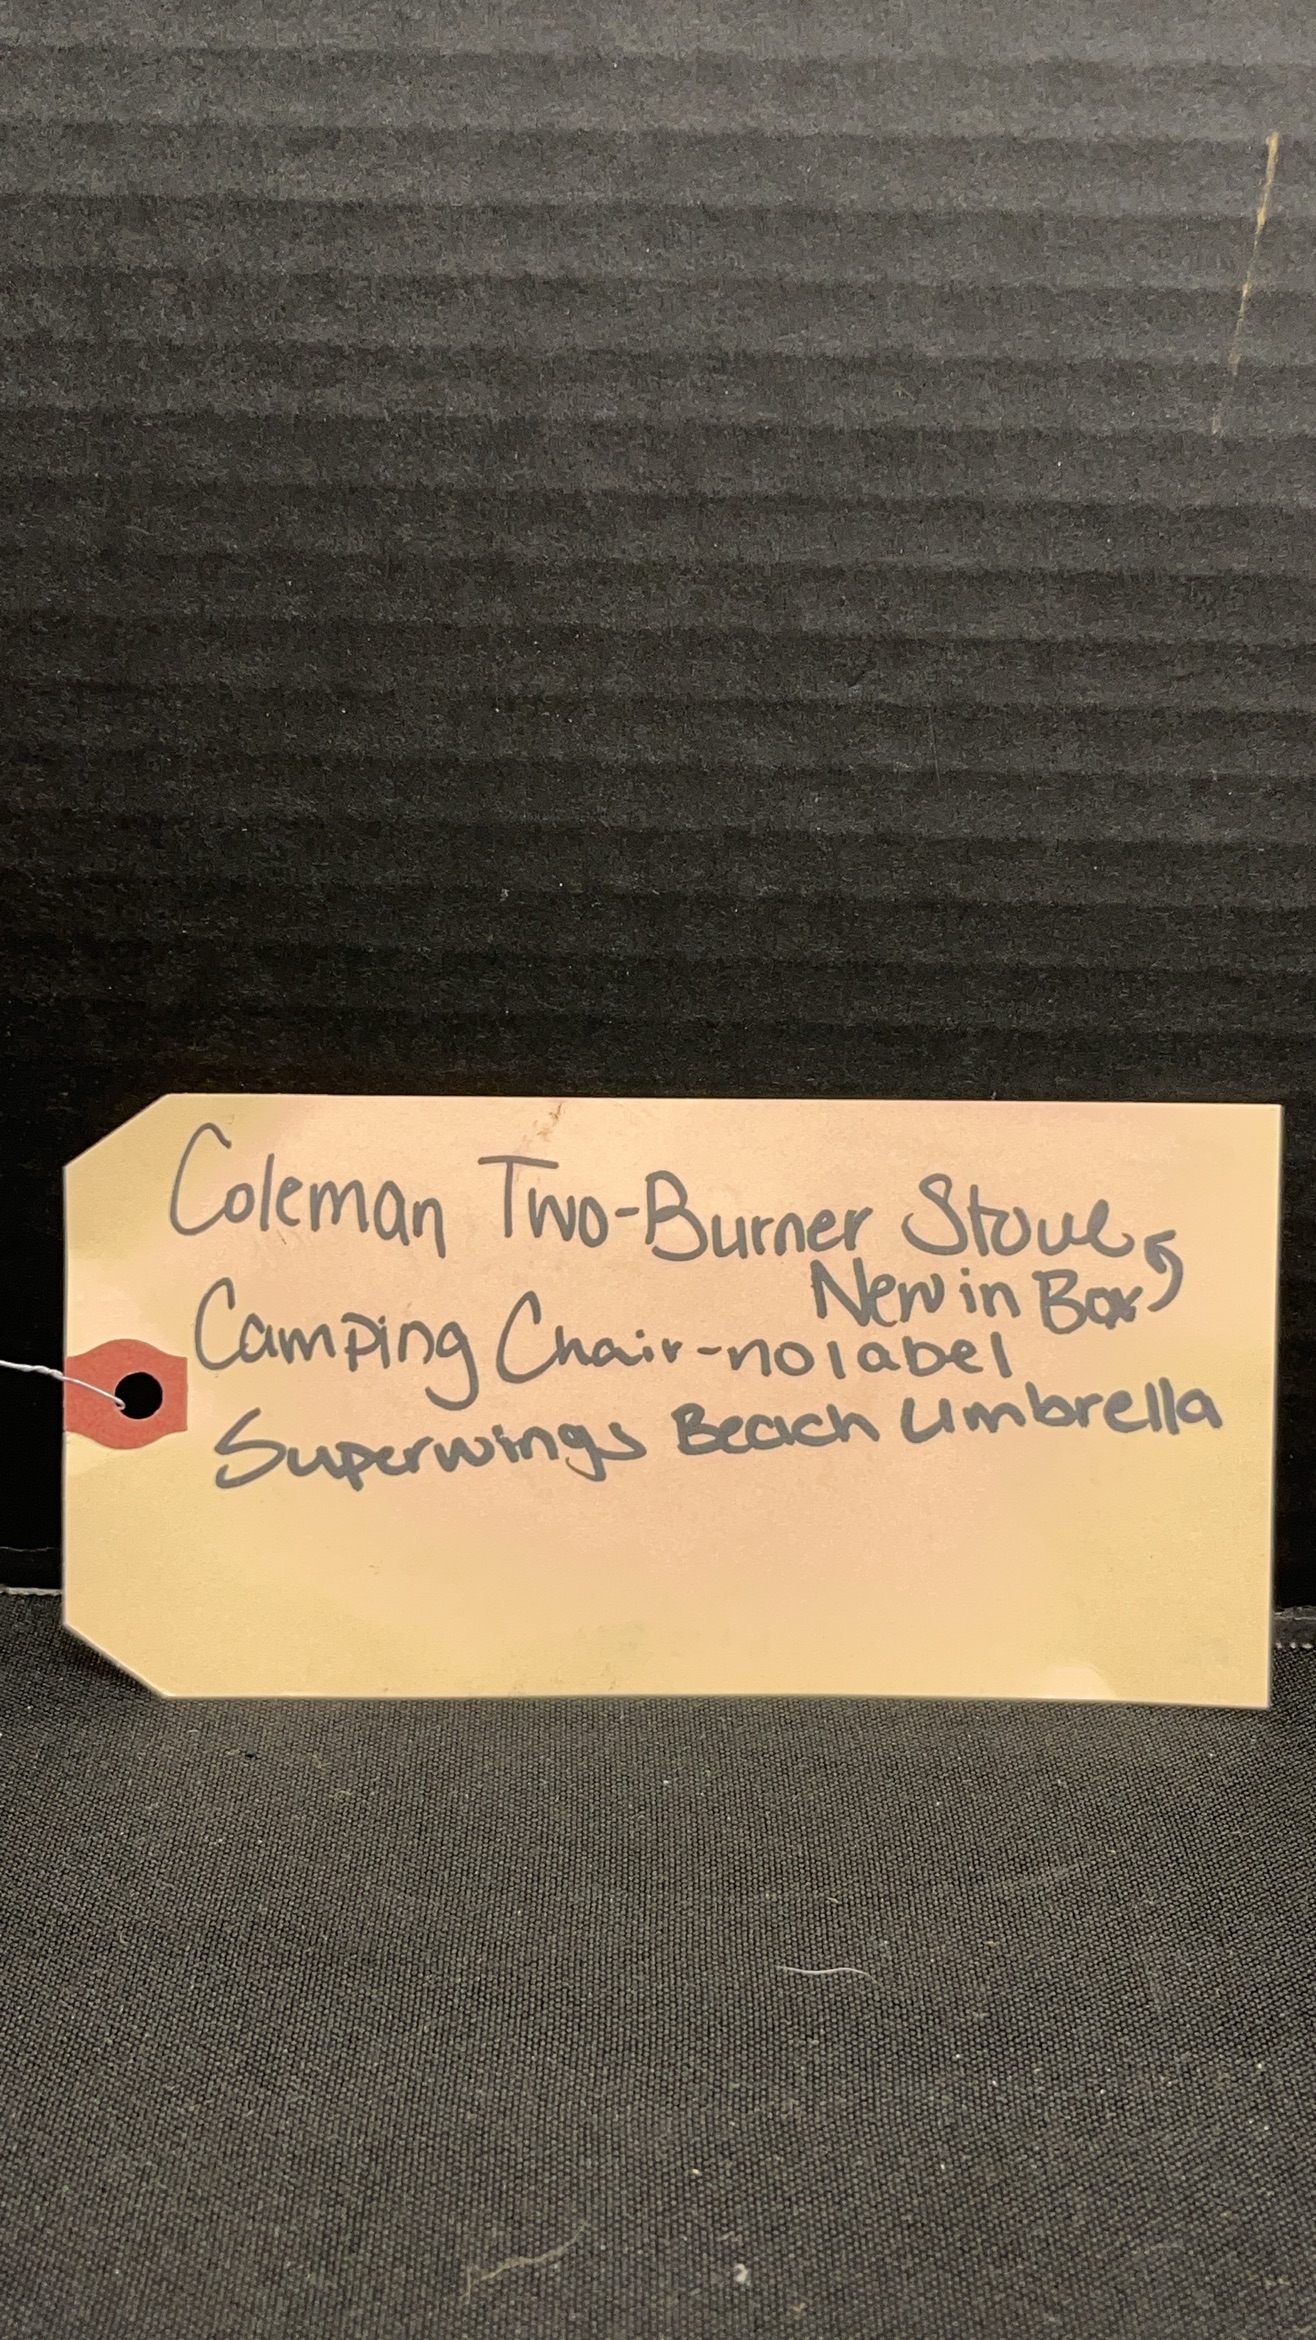 Coleman Two-Burner Stove
New in Box
Camping Chair-no label
Superwings Beach Umbrella